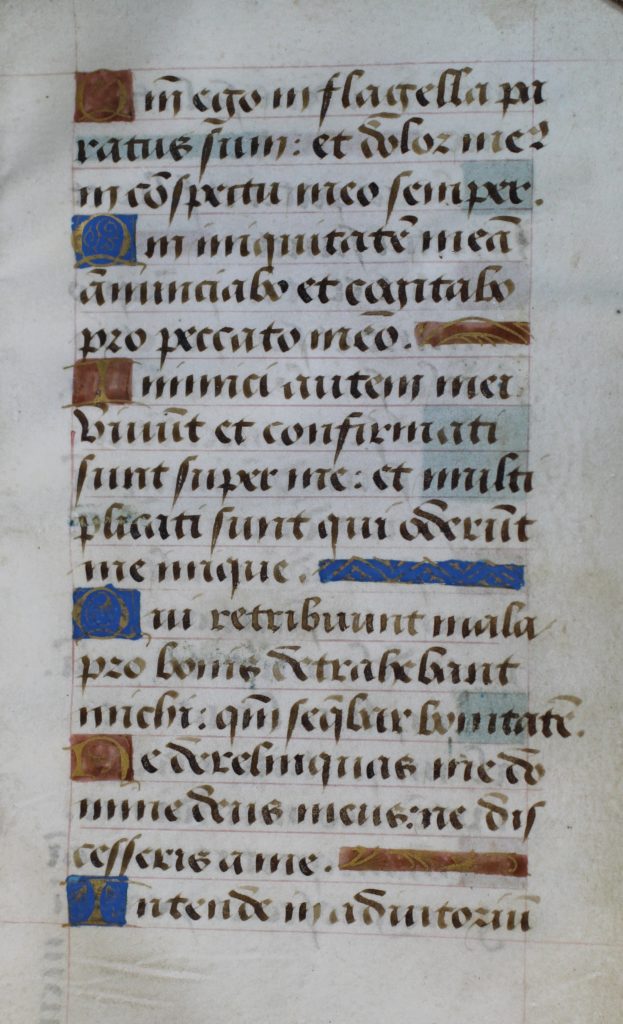 Qm̄ ego in flagella pa
ratus sum̄: et dolor meꝰ
in cōspectu meo semper.
Qm̄ iniquitatē meā
ānunciabo et cogitabo
pro peccato meō.
Inimici autem mei
Viuūt et confirmati
sunt super me: et multi
plicati sunt qui oderūt
me inique.
Qui retribuunt mala
pro bonis detrahebant
michi: qm̄ seq̄bar bonitatē.
Ne derelinquas me do
mine deus meus: ne dis
cesseris a me.
Intende in adiutoriū